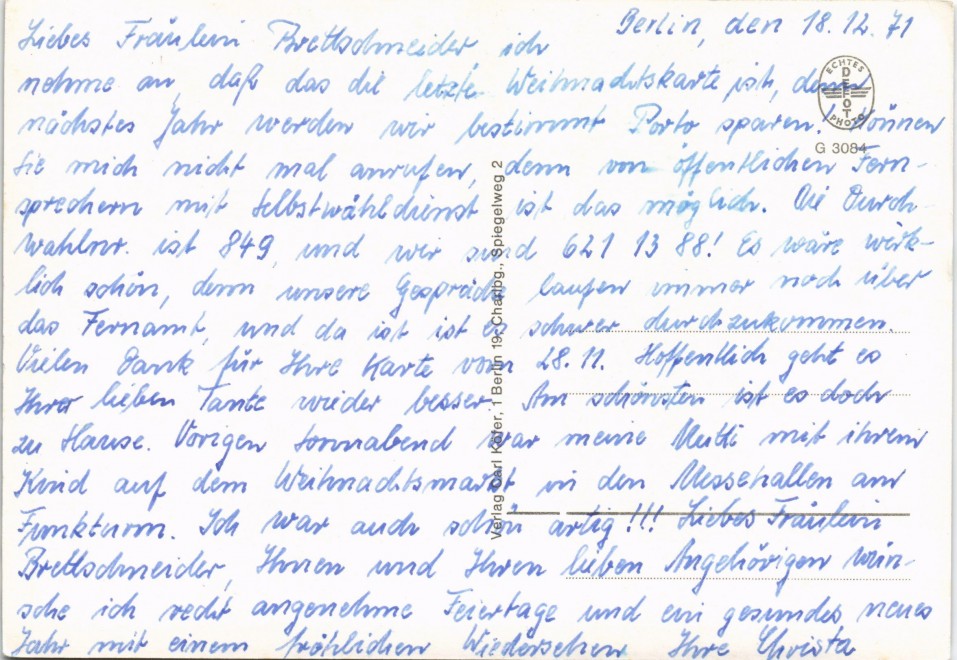 Berlin, den 18.12.71
Liebes Fräulein Brettschneider, ich
nehme an, daß das die letzte Weihnachtskarte ist, denn
nächstes Jahr werden wir bestimmt Porto sparen! Können
Sie mich nicht mal anrufen, denn von öffentlichen Fern-
sprechern mit Selbstwähldienst ist das möglich. Die Durch-
wahlnr. ist 849, und wir sind 621 13 88! Es wäre wirk-
lich schön, denn unsere Gespräche laufen immer noch über
das Fernamt, und da ist ist es schwer durchzukommen.
Vielen Dank für Ihre Karte vom 28.11. Hoffentlich geht es
Ihrer lieben Tante wieder besser. Am schönsten ist es doch
zu Hause. Vorigen Sonnabend war meine Mutti mit ihrem
Kind auf dem Weihnachtsmarkt in den Messehallen am
Funkturm. Ich war auch schön artig!!! Liebes Fräulein
Brettschneider, Ihnen und Ihren lieben Angehörigen wün-
sche ich recht angenehme Feiertage und ein gesundes neues
Jahr mit einem fröhlichen Wiedersehen Ihre Christa
ECHTES
DEFOT
PHOTO
G 3084
Verlag Carl Köfer, 1 Berlin 19, Charlbg., Spiegelweg 2